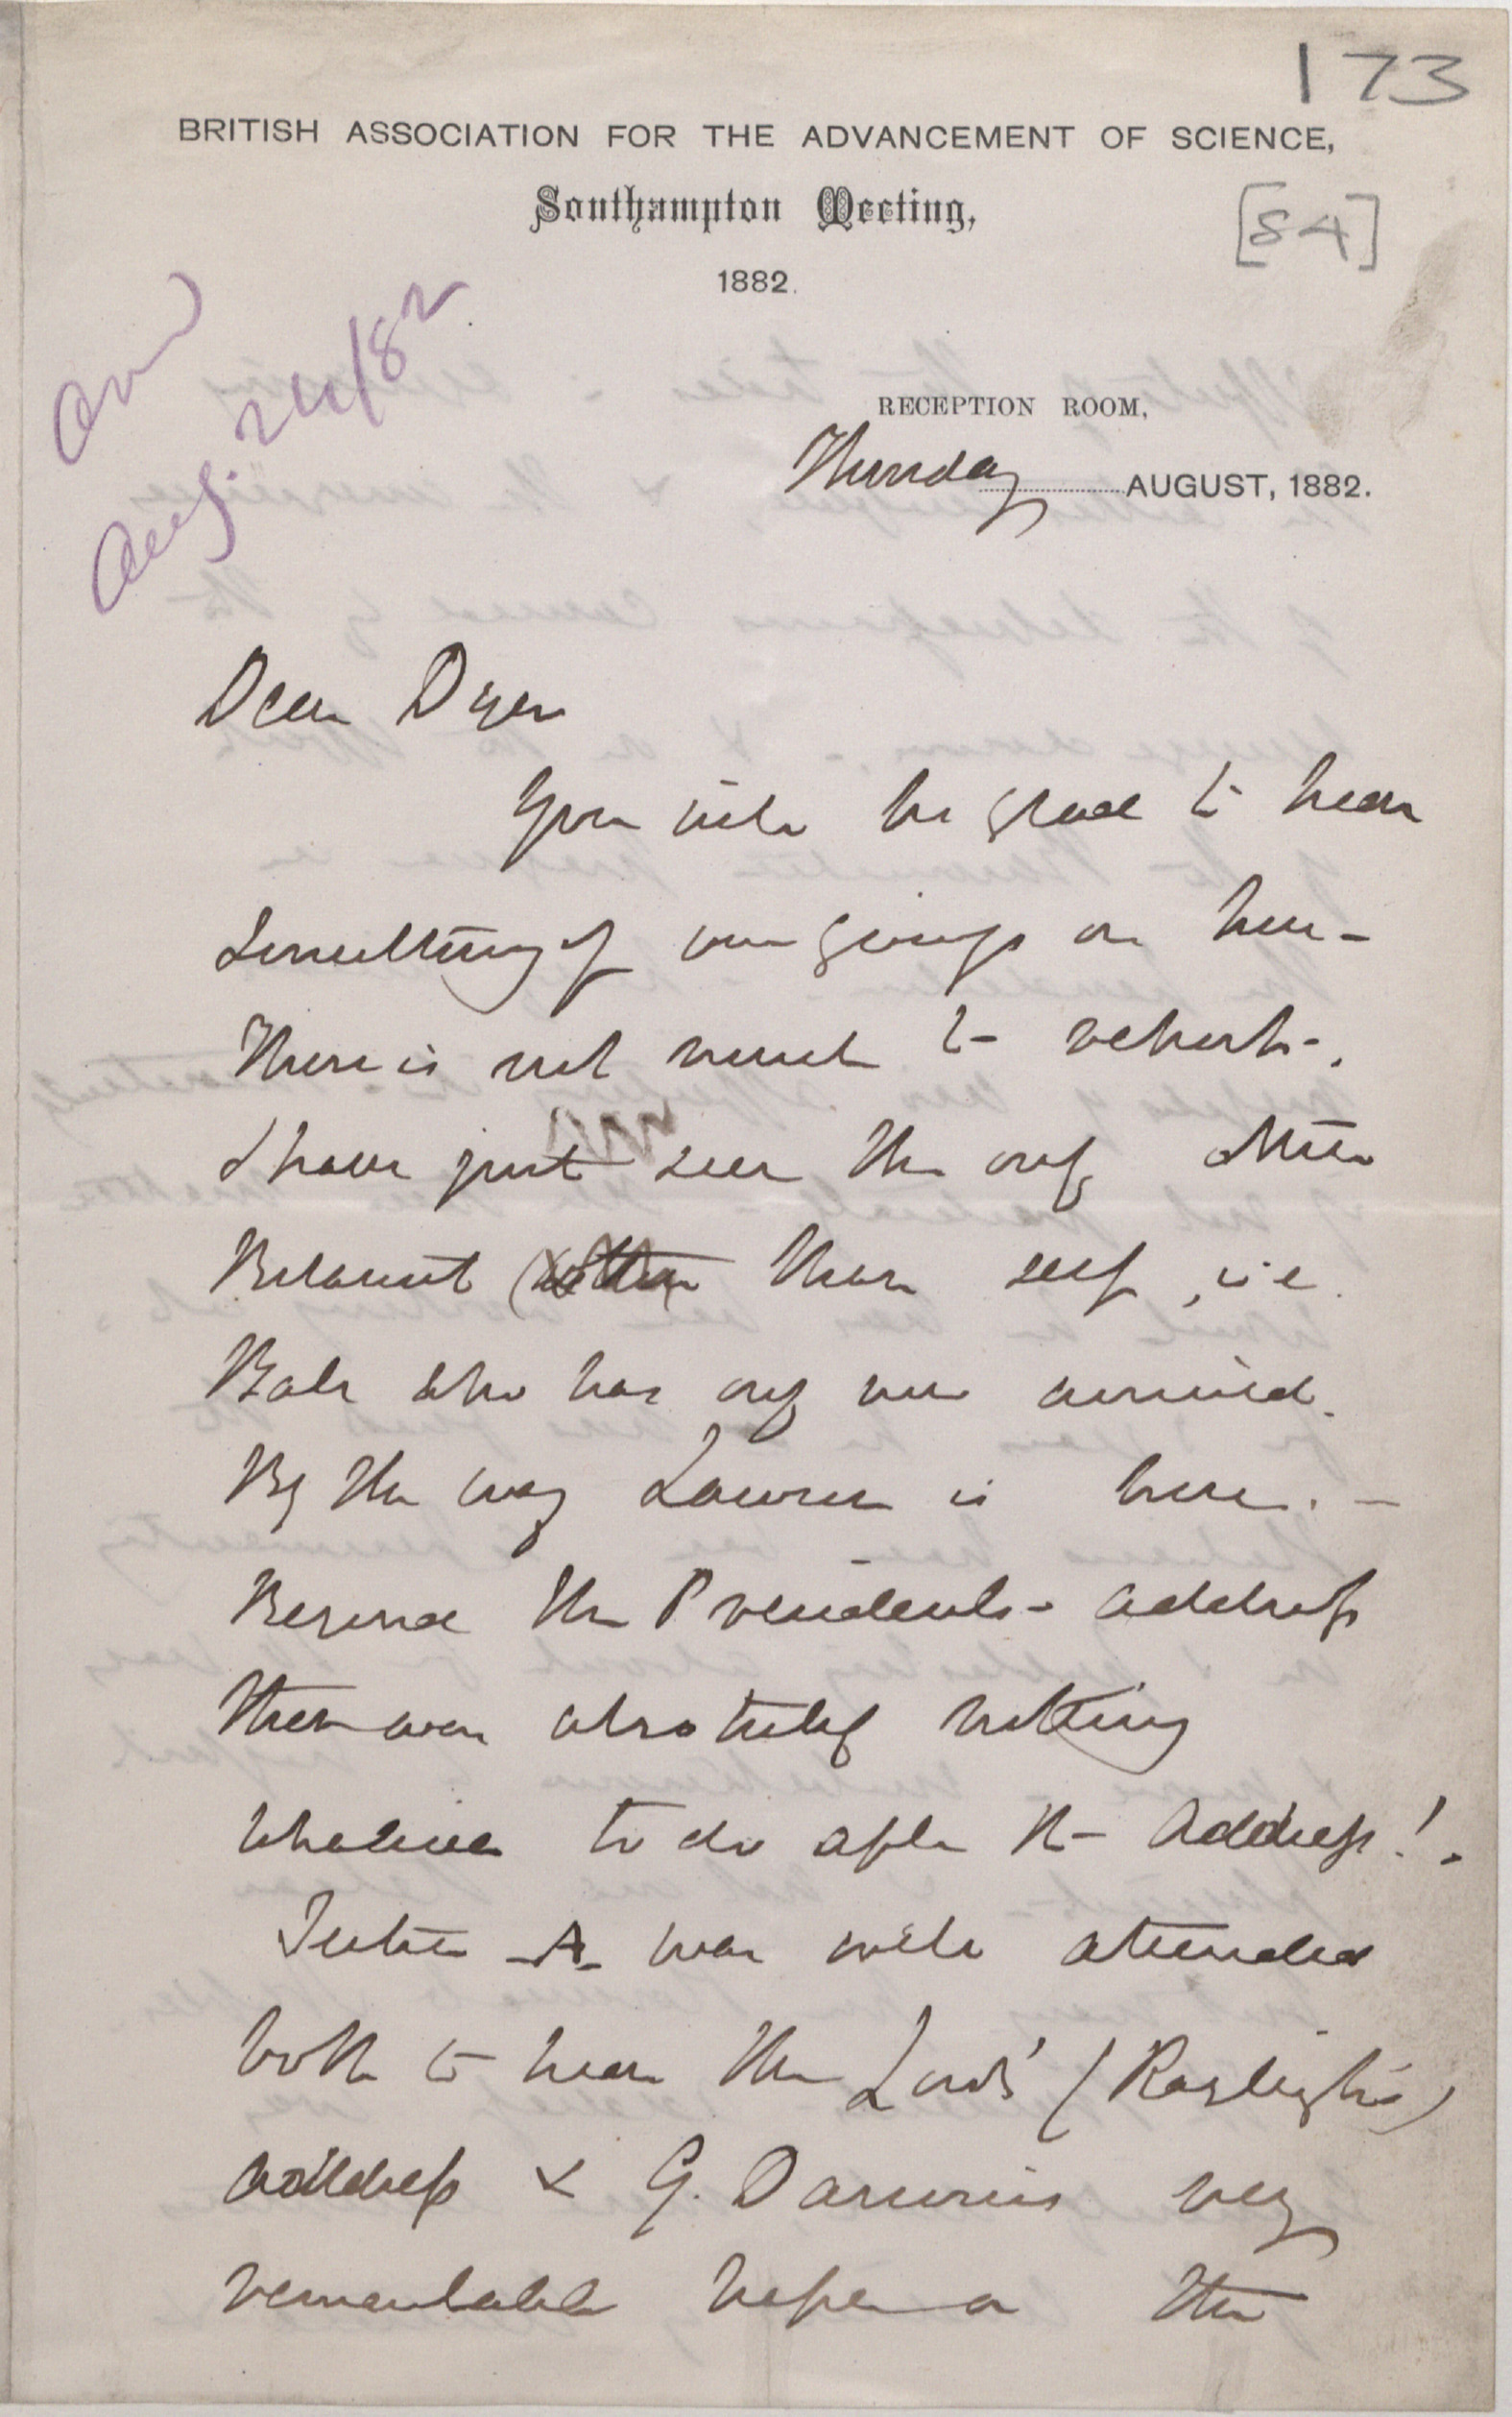 173
BRITISH ASSOCIATION FOR THE ADVANCEMENT OF SCIENCE,
Southampton Meeting,
[84]
1882.
Aug. 24/82
RECEPTION ROOM,
Thursday AUGUST, 1882.
Dear Dyer
You will be glad to hear
something of our goings on here –
There is not much to report.
I have just seen the only other
Botanist than self, i.e.
Balr who has only now arrived.
By the way Lawson is here. –
Beyond the Presidents address
there was absolutely nothing
whatever to do after the Address!.
Section A was well attended
both to hear the Lord's (Rayleigh's)
address & G. Darwin's very
remarkable paper on the